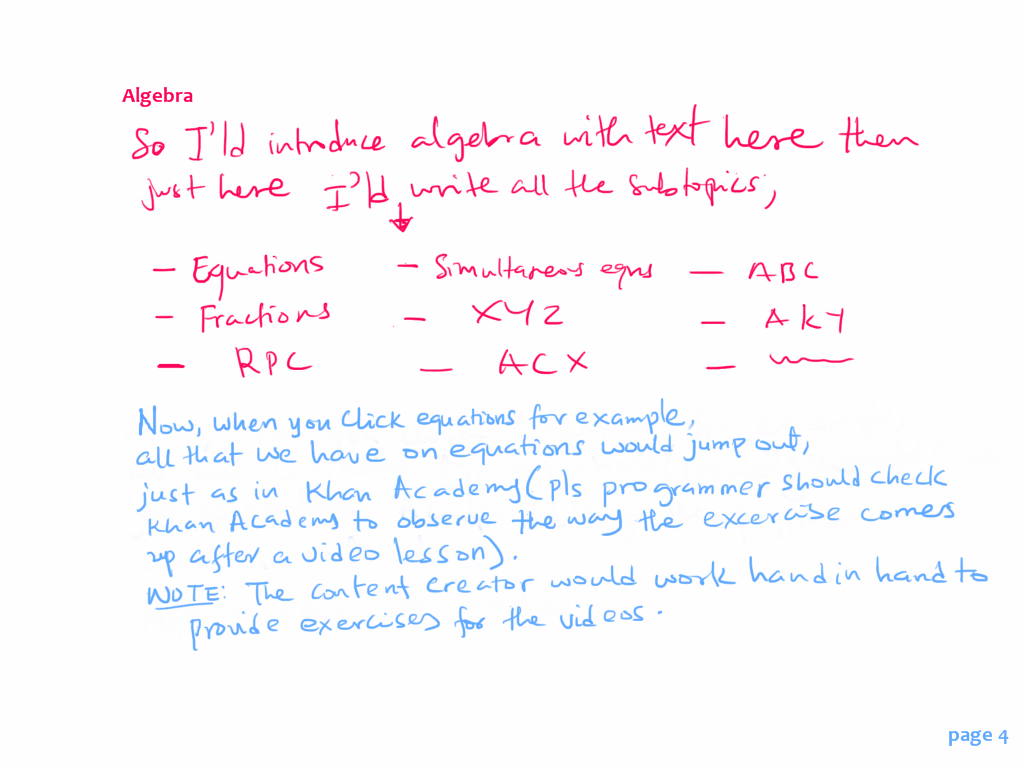 Algebra
So I'ld introduce algebra with text here then
just here I'ld write all the subtopics,
– Equations – Simultaneous eqns – ABC
– Fractions – XYZ – AKY
– RPC – ACX –
Now, when you click equations for example,
all that we have on equations would jump out,
just as in Khan Academy (pls programmer should check
Khan Academy to observe the way the excercise comes
up after a video lesson).
NOTE: The content creator would work hand in hand to
provide exercises for the videos.
page 4